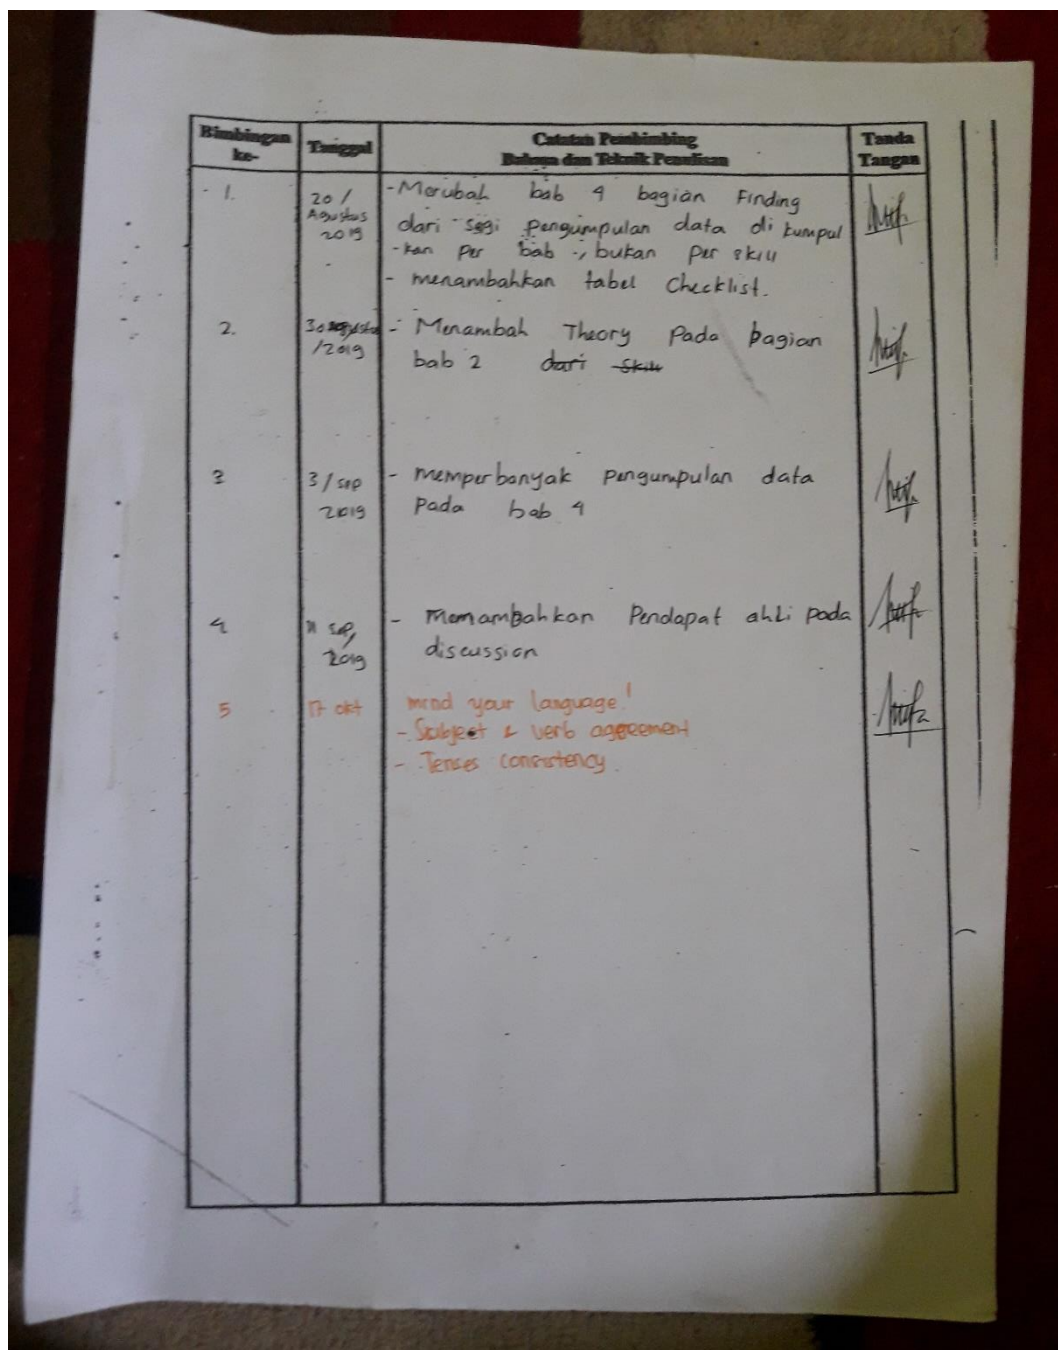 Bimbingan ke-
Tanggal
Catatan Pembimbing
Bahasa dan Teknik Penulisan
Tanda Tangan
1.
20 /
Agustus
2019
- Merubah bab 4 bagian Finding
dari segi pengumpulan data di kumpul
-kan per bab, bukan per skill
- menambahkan tabel Checklist.
2.
30 Agustus
/2019
- Menambah Theory Pada bagian
bab 2 dari skill
3
3 / sep
2019
- memperbanyak pengumpulan data
pada bab 4
4
11 sep,
2019
- Menambahkan Pendapat ahli pada
discussion
5
17 okt
mind your language!
- Subject & verb agreement
- Tenses consistency.